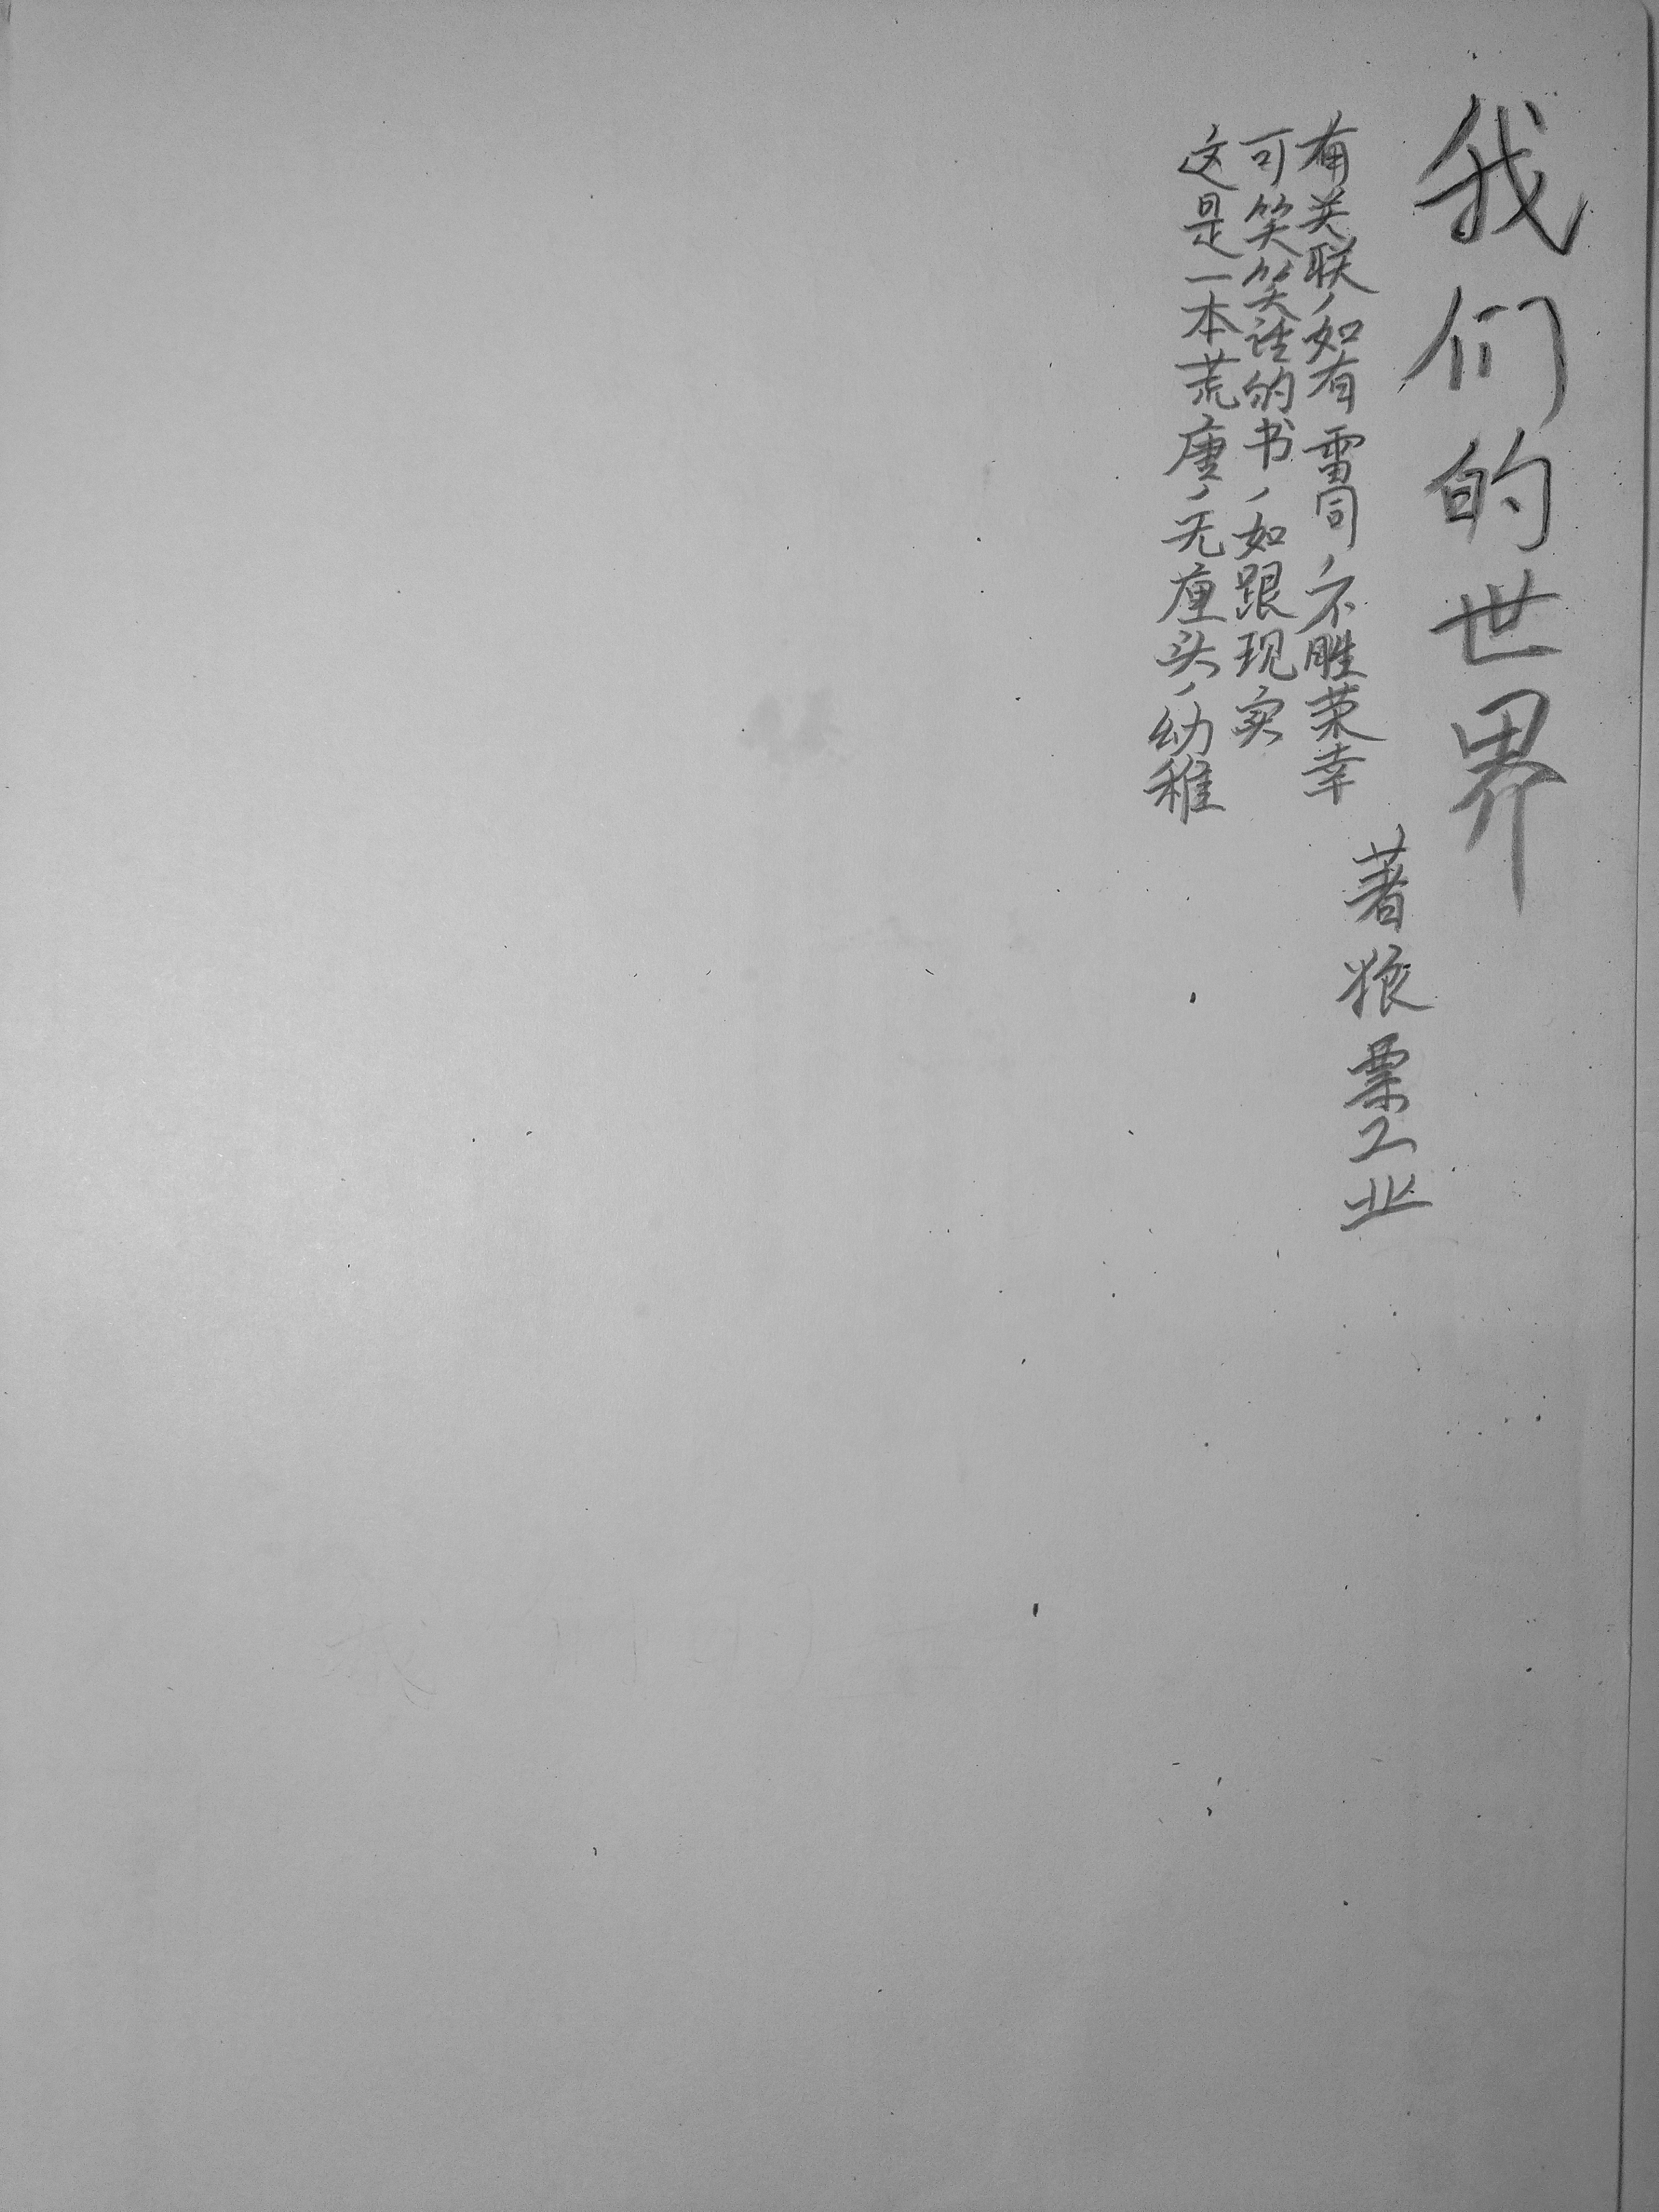 我们的世界
著狼栗工业
这是一本荒唐，无厘头，幼稚
可笑笑话的书，如跟现实
有关联，如有雷同，不胜荣幸